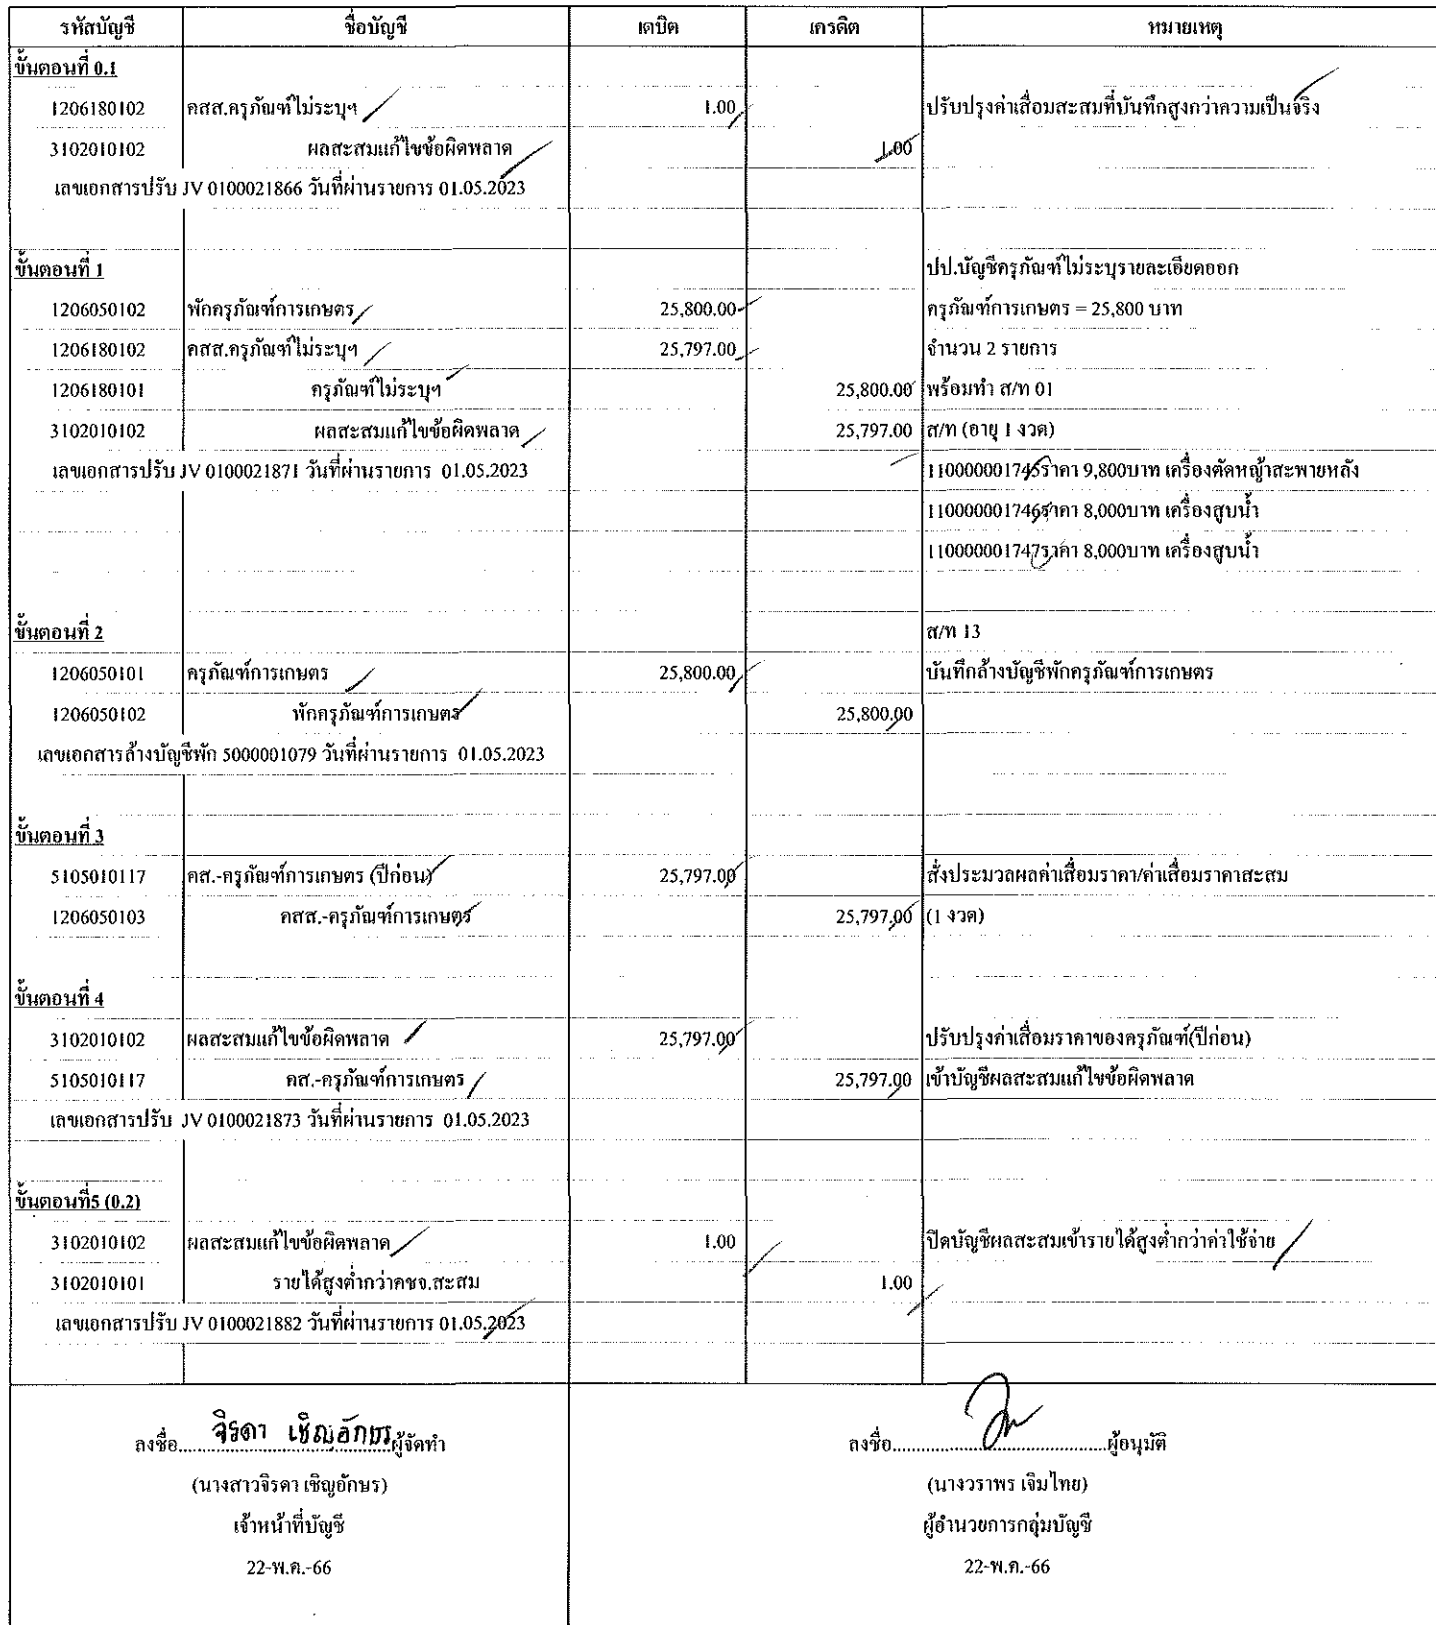 รหัสบัญชี ชื่อบัญชี เดบิต เครดิต หมายเหตุ
ขั้นตอนที่ 0.1
1206180102 คสส.ครุภัณฑ์ไม่ระบุฯ 1.00 ปรับปรุงค่าเสื่อมสะสมที่บันทึกสูงกว่าความเป็นจริง
3102010102 ผลสะสมแก้ไขข้อผิดพลาด 1.00
เลขเอกสารปรับ JV 0100021866 วันที่ผ่านรายการ 01.05.2023
ขั้นตอนที่ 1 ปป.บัญชีครุภัณฑ์ไม่ระบุรายละเอียดออก
1206050102 พักครุภัณฑ์การเกษตร 25,800.00 ครุภัณฑ์การเกษตร = 25,800 บาท
1206180102 คสส.ครุภัณฑ์ไม่ระบุฯ 25,797.00 จำนวน 2 รายการ
1206180101 ครุภัณฑ์ไม่ระบุฯ 25,800.00 พร้อมทำ ส/ท 01
3102010102 ผลสะสมแก้ไขข้อผิดพลาด 25,797.00 ส/ท (อายุ 1 งวด)
เลขเอกสารปรับ JV 0100021871 วันที่ผ่านรายการ 01.05.2023 110000001745ราคา 9,800บาท เครื่องตัดหญ้าสะพายหลัง
110000001746ราคา 8,000บาท เครื่องสูบน้ำ
110000001747ราคา 8,000บาท เครื่องสูบน้ำ
ขั้นตอนที่ 2 ส/ท 13
1206050101 ครุภัณฑ์การเกษตร 25,800.00 บันทึกล้างบัญชีพักครุภัณฑ์การเกษตร
1206050102 พักครุภัณฑ์การเกษตร 25,800.00
เลขเอกสารล้างบัญชีพัก 5000001079 วันที่ผ่านรายการ 01.05.2023
ขั้นตอนที่ 3
5105010117 คส.-ครุภัณฑ์การเกษตร (ปีก่อน) 25,797.00 สั่งประมวลผลค่าเสื่อมราคา/ค่าเสื่อมราคาสะสม
1206050103 คสส.-ครุภัณฑ์การเกษตร 25,797.00 (1 งวด)
ขั้นตอนที่ 4
3102010102 ผลสะสมแก้ไขข้อผิดพลาด 25,797.00 ปรับปรุงค่าเสื่อมราคาของครุภัณฑ์(ปีก่อน)
5105010117 คส.-ครุภัณฑ์การเกษตร 25,797.00 เข้าบัญชีผลสะสมแก้ไขข้อผิดพลาด
เลขเอกสารปรับ JV 0100021873 วันที่ผ่านรายการ 01.05.2023
ขั้นตอนที่5 (0.2)
3102010102 ผลสะสมแก้ไขข้อผิดพลาด 1.00 ปิดบัญชีผลสะสมเข้ารายได้สูงต่ำกว่าค่าใช้จ่าย
3102010101 รายได้สูงต่ำกว่าคชจ.สะสม 1.00
เลขเอกสารปรับ JV 0100021882 วันที่ผ่านรายการ 01.05.2023
ลงชื่อ....จิรดา เชิญอักษร....ผู้จัดทำ ลงชื่อ........................................ผู้อนุมัติ
(นางสาวจิรดา เชิญอักษร) (นางวราพร เจิมไทย)
เจ้าหน้าที่บัญชี ผู้อำนวยการกลุ่มบัญชี
22-พ.ค.-66 22-พ.ค.-66